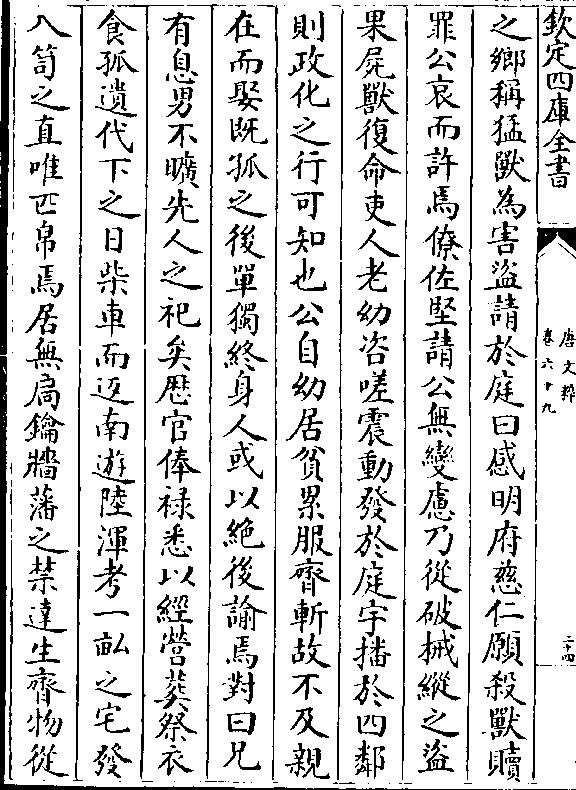 欽定四庫全書
唐文粹
卷六十九
二十四
之鄉稱猛獸為害盜請於庭曰感明府慈仁願殺獸贖
罪公哀而許焉僚佐堅請公無變慮乃從破械縱之盜
果屍獸復命吏人老幼咨嗟震動發於庭宇播於四鄰
則政化之行可知也公自幼居貧累服齊斬故不及親
在而娶既孤之後單獨終身人或以絶後諭焉對曰兄
有息男不曠先人之祀矣歴官俸禄悉以經營葬祭衣
食孤遺代下之日柴車而返南遊陸渾考一畝之宅發
八笥之直唯匹帛焉居無扃鑰牆藩之禁達生齊物從